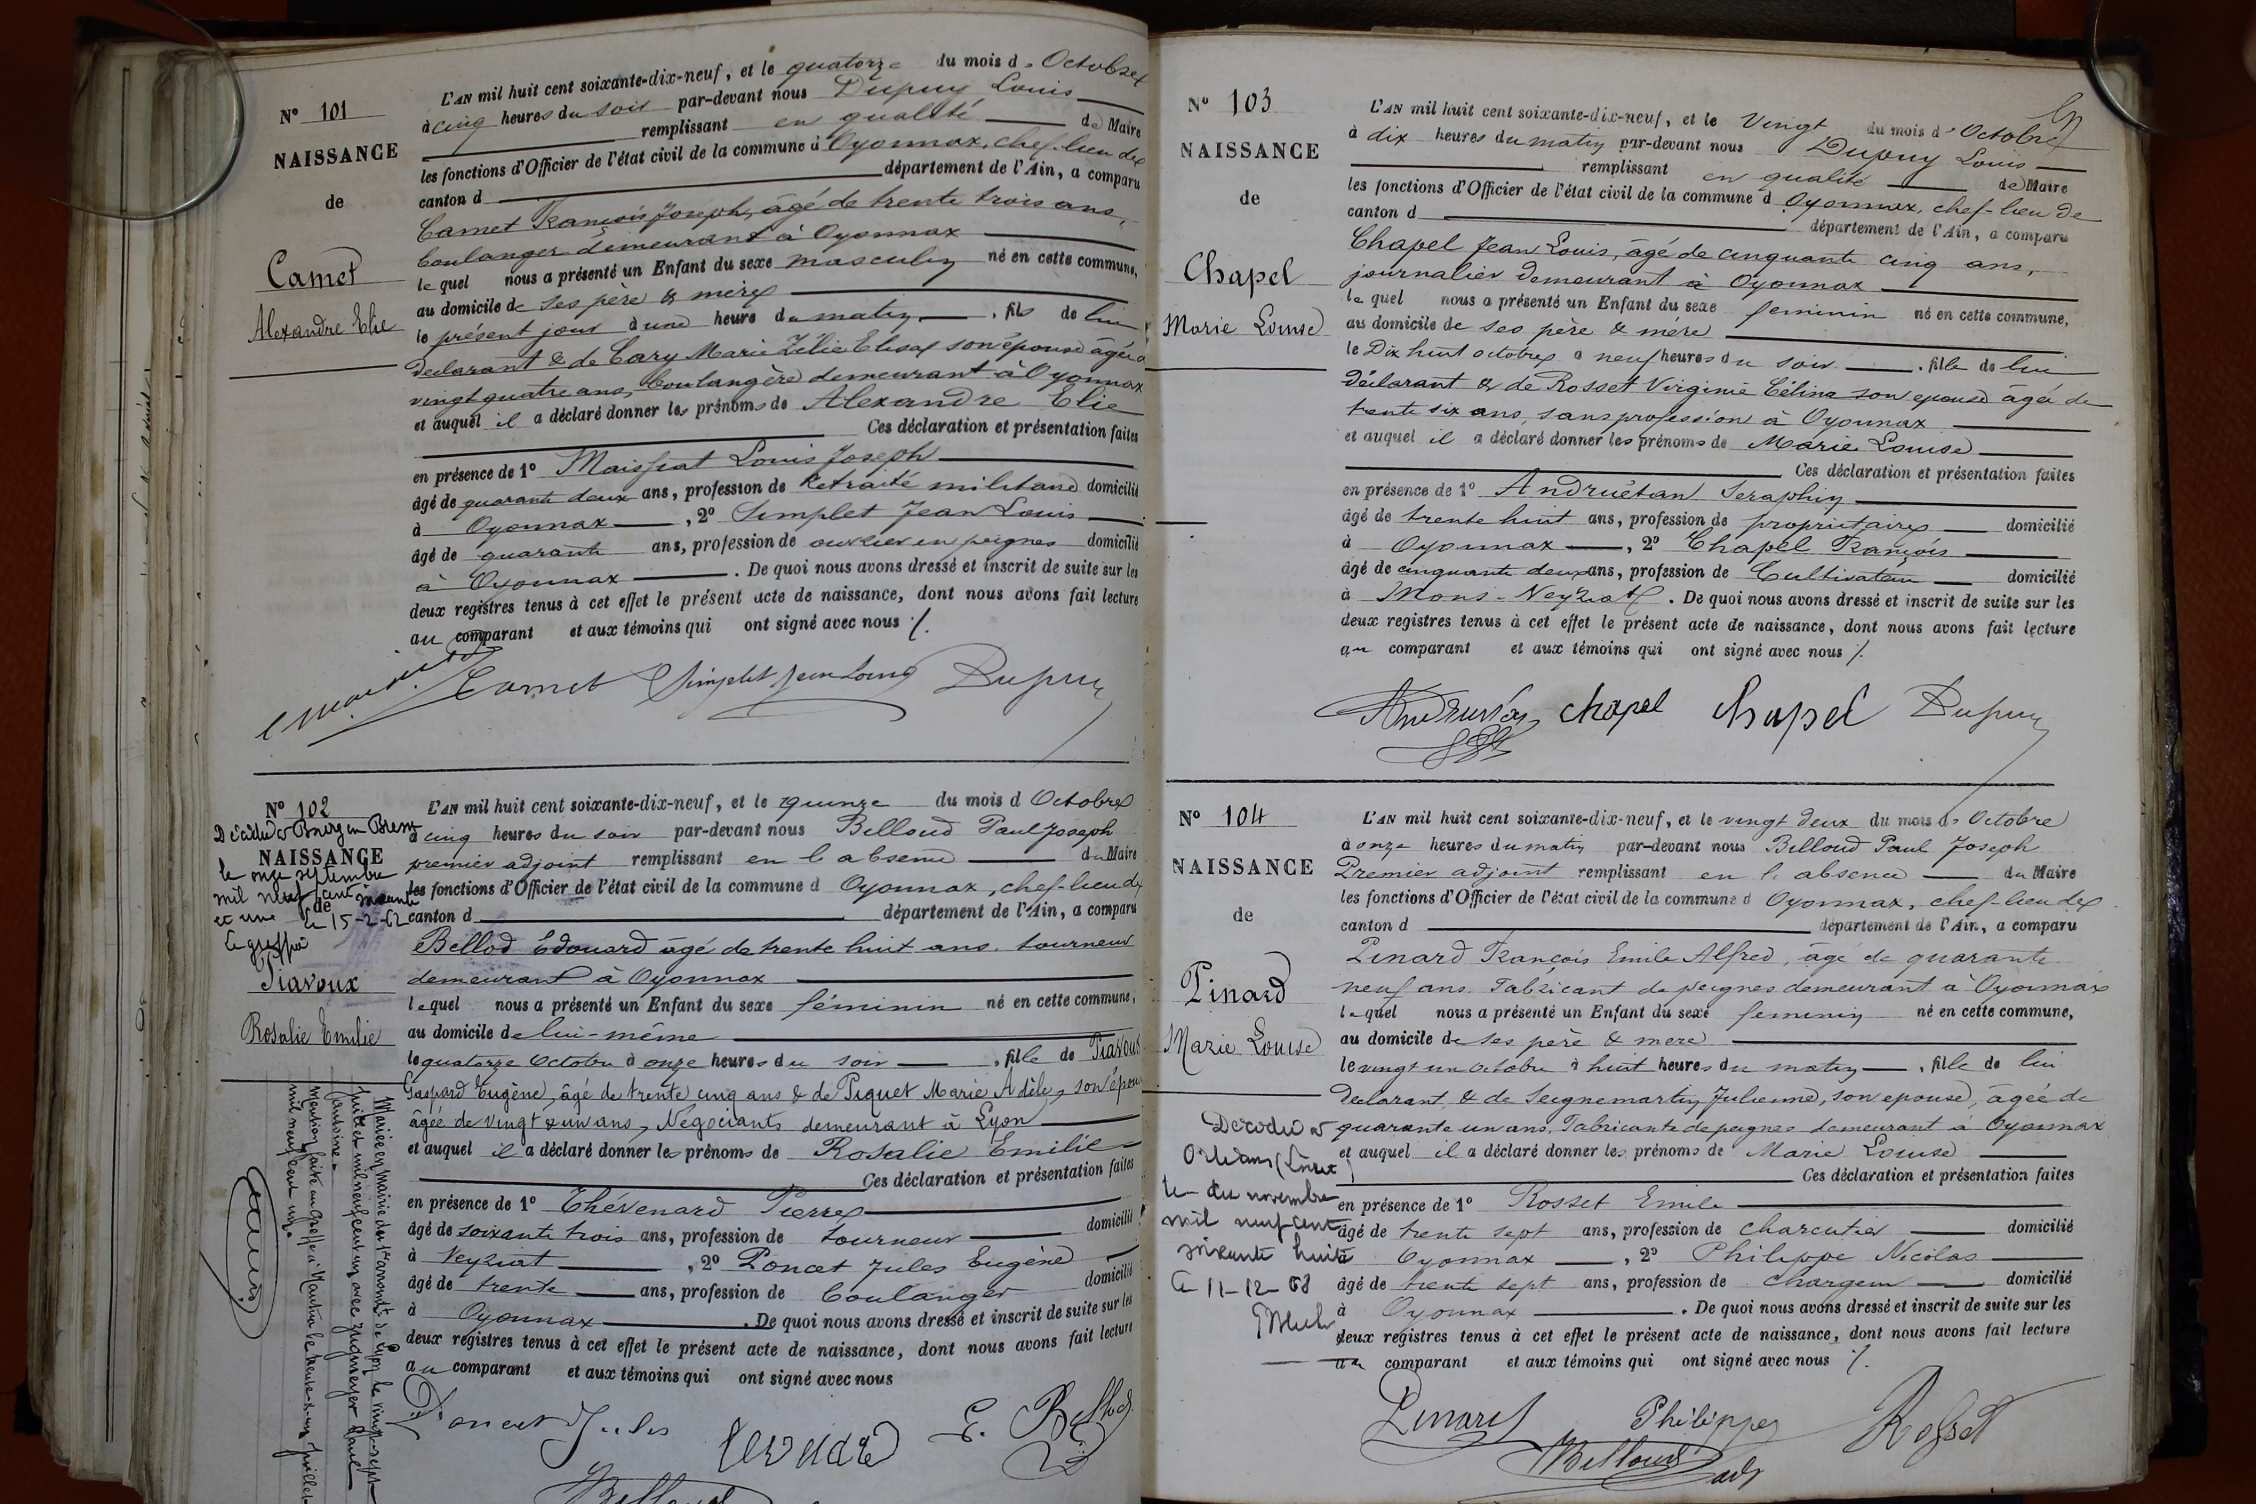 N° 101
NAISSANCE
de
Camet
Alexandre Elie
L'AN mil huit cent soixante-dix-neuf, et le quatorze du mois d'Octobre
à cinq heures du soir par-devant nous Dupuy Louis
remplissant en qualité de Maire
les fonctions d'Officier de l'état civil de la commune d'Oyonnax, chef-lieu de
canton d département de l'Ain, a comparu
Camet François Joseph, âgé de trente trois ans,
boulanger demeurant à Oyonnax
lequel nous a présenté un Enfant du sexe masculin né en cette commune,
au domicile de ses père & mère
le présent jour à une heure du matin, fils de lui
déclarant & de Cary Marie Zélie Elisa son épouse âgée de
vingt quatre ans, boulangère demeurant à Oyonnax
et auquel il a déclaré donner les prénoms de Alexandre Elie
Ces déclaration et présentation faites
en présence de 1° Maissiat Louis Joseph
âgé de quarante deux ans, profession de Retraité militaire domicilié
à Oyonnax, 2° Simplet Jean Louis
âgé de quarante ans, profession de ouvrier en peignes domicilié
à Oyonnax. De quoi nous avons dressé et inscrit de suite sur les
deux registres tenus à cet effet le présent acte de naissance, dont nous avons fait lecture
au comparant et aux témoins qui ont signé avec nous ./.
Camet Simplet Jean Louis Dupuy
N° 102
NAISSANCE
de
Décédée à Bourg en Bresse
le onze septembre
mil neuf cent soixante
et une le 15-2-62
Le greffier
Piavoux
Rosalie Emilie
Mariée en Mairie du 1er arrondt de Lyon le vingt-sept
juillet mil neuf cent un avec
Antoine.
Mention faite au Greffe à Nantua le trente-et-un juillet
mil neuf cent un.
L'AN mil huit cent soixante-dix-neuf, et le quinze du mois d Octobre
à cinq heures du soir par-devant nous Belloud Paul Joseph
premier adjoint remplissant en l'absence du Maire
les fonctions d'Officier de l'état civil de la commune d Oyonnax, chef-lieu de
canton d département de l'Ain, a comparu
Bellod Edouard âgé de trente huit ans. tourneur
demeurant à Oyonnax
lequel nous a présenté un Enfant du sexe féminin né en cette commune,
au domicile de lui-même
le quatorze Octobre à onze heures du soir, fille de Piavoux
Gaspard Eugène, âgé de trente cinq ans & de Piquet Marie Adèle, son épouse
âgée de vingt & un ans, Négociants demeurant à Lyon
et auquel il a déclaré donner les prénoms de Rosalie Emilie
Ces déclaration et présentation faites
en présence de 1° Thévenard Pierre
âgé de soixante trois ans, profession de tourneur domicilié
à Veyziat, 2° Poncet Jules Eugène
âgé de trente ans, profession de boulanger domicilié
à Oyonnax. De quoi nous avons dressé et inscrit de suite sur les
deux registres tenus à cet effet le présent acte de naissance, dont nous avons fait lecture
au comparant et aux témoins qui ont signé avec nous
Poncet Jules E. Bellod
Belloud
N° 103
NAISSANCE
de
Chapel
Marie Louise
L'AN mil huit cent soixante-dix-neuf, et le Vingt du mois d'Octobre
à dix heures du matin par-devant nous Dupuy Louis
remplissant en qualité de Maire
les fonctions d'Officier de l'état civil de la commune d Oyonnax, chef-lieu de
canton d département de l'Ain, a comparu
Chapel Jean Louis, âgé de cinquante cinq ans,
journalier demeurant à Oyonnax
lequel nous a présenté un Enfant du sexe feminin né en cette commune,
au domicile de ses père & mère
le Dix huit octobre à neuf heures du soir, fille de lui
Déclarant & de Rosset Virginie Célina son épouse âgée de
trente six ans, sans profession à Oyonnax
et auquel il a déclaré donner les prénoms de Marie Louise
Ces déclaration et présentation faites
en présence de 1° Andruétan Seraphin
âgé de trente huit ans, profession de propriétaire domicilié
à Oyonnax, 2° Chapel François
âgé de cinquante deux ans, profession de Cultivateur domicilié
à Mons-Veyziat. De quoi nous avons dressé et inscrit de suite sur les
deux registres tenus à cet effet le présent acte de naissance, dont nous avons fait lecture
au comparant et aux témoins qui ont signé avec nous ./.
chapel Chapel Dupuy
N° 104
NAISSANCE
de
Pinard
Marie Louise
Décédée à
Orléans (Loiret)
le du novembre
mil neuf cent
soixante huit
le 11-12-68
L'AN mil huit cent soixante-dix-neuf, et le vingt deux du mois d'Octobre
à onze heures du matin par-devant nous Belloud Paul Joseph
Premier adjoint remplissant en l'absence du Maire
les fonctions d'Officier de l'état civil de la commune d Oyonnax, chef-lieu de
canton d département de l'Ain, a comparu
Pinard François Emile Alfred, âgé de quarante
neuf ans. Fabricant de peignes demeurant à Oyonnax
lequel nous a présenté un Enfant du sexe feminin né en cette commune,
au domicile de ses père & mère
le vingt un octobre à huit heures du matin, fille de lui
Déclarant, & de Seignemartin Julienne, son épouse, âgée de
quarante un ans, Fabricante de peignes demeurant à Oyonnax
et auquel il a déclaré donner les prénoms de Marie Louise
Ces déclaration et présentation faites
en présence de 1° Rosset Emile
âgé de trente sept ans, profession de charcutier domicilié
à Oyonnax, 2° Philippe Nicolas
âgé de trente sept ans, profession de chargeur domicilié
à Oyonnax. De quoi nous avons dressé et inscrit de suite sur les
deux registres tenus à cet effet le présent acte de naissance, dont nous avons fait lecture
au comparant et aux témoins qui ont signé avec nous ./.
Pinard Philippe Rosset
Belloud adj